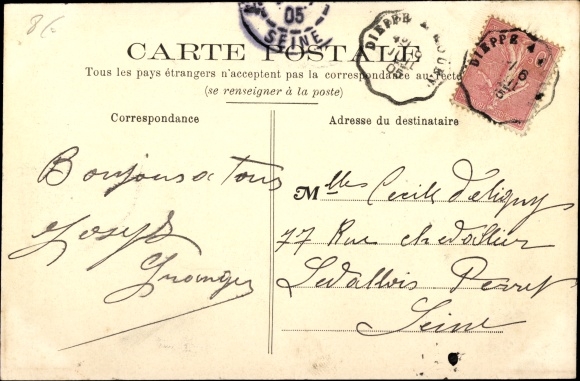 8/-
05
SEINE
CARTE POSTALE
Tous les pays étrangers n'acceptent pas la correspondance au recto
(se renseigner à la poste)
DIEPPE A ROUEN
DIEPPE A
Correspondance
Adresse du destinataire
Bonjours a Tous
Joseph
Mlles Cecile d'étigny
77 Rue chevallier
Levallois Perret
Seine